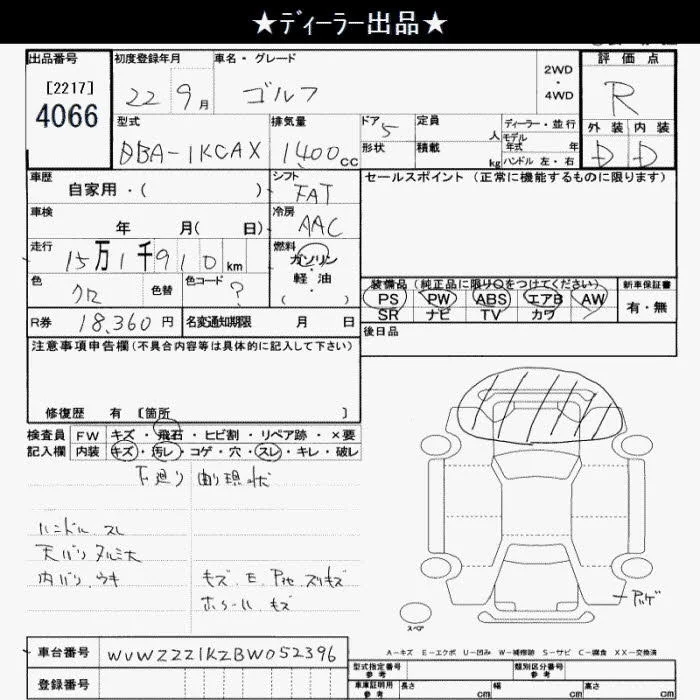 ★ディーラー出品★
出品番号 初度登録年月 車名・グレード 2WD・4WD 評価点
[2217]
4066
22 9月 ゴルフ R
型式 排気量 ドア 定員 人 ディーラー・並行 外装 内装
モデル年式 年
DBA-1KCAX 1400cc 5 形状 積載 kg ハンドル 左・右 D D
車歴 シフト セールスポイント (正常に機能するものに限ります)
自家用・( ) FAT
車検 冷房
年 月( 日) AAC
走行 燃料
15万1千910km ガソリン
色 色替 色コード 軽油
クロ ? ( ・ )
装備品(純正品に限り○をつけてください) 新車保証書
PS PW ABS エアB AW 有・無
SR ナビ TV カワ
R券 18,360円 名変通知期限 月 日 後日品
注意事項申告欄(不具合内容等は具体的に記入して下さい)
修復歴 有 [箇所 ]
検査員 FW キズ・飛石・ヒビ割・リペア跡・×要
記入欄 内装 キズ・汚レ・コゲ・穴・スレ・キレ・破レ
下廻り 曲り現状
ハンドル スレ
天バリ タルミ大
内バリ ウキ キズ E
ホイール キズ
スペア
A-キズ E-エクボ U-凹み W-補修跡 S-サビ C-腐食 XX-交換済
車台番号 WVWZZZ1KZBW052396
型式指定番号 参考 類別区分番号 参考
登録番号
車庫証明用 参考 長さ cm 幅 cm 高さ cm